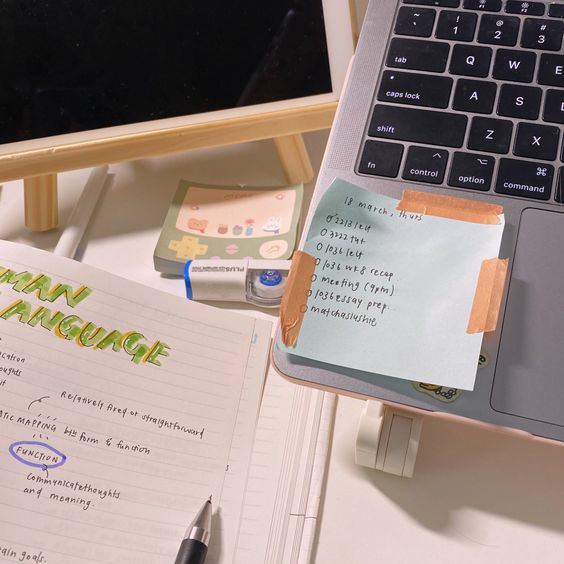 ! 1
@ 2
# 3
tab
Q
W
E
caps lock
A
S
D
shift
Z
X
fn
control
option
command
18 march, thurs
2213 lect
3222 tut
1036 lect
1036 wk 8 recap
meeting (9pm)
1036 essay prep.
matchaslushie
PLUS
MAN
LANGUAGE
Relatively fixed or straightforward
MAPPING btn form & function
FUNCTION
communicate thoughts
and meaning.
goals.